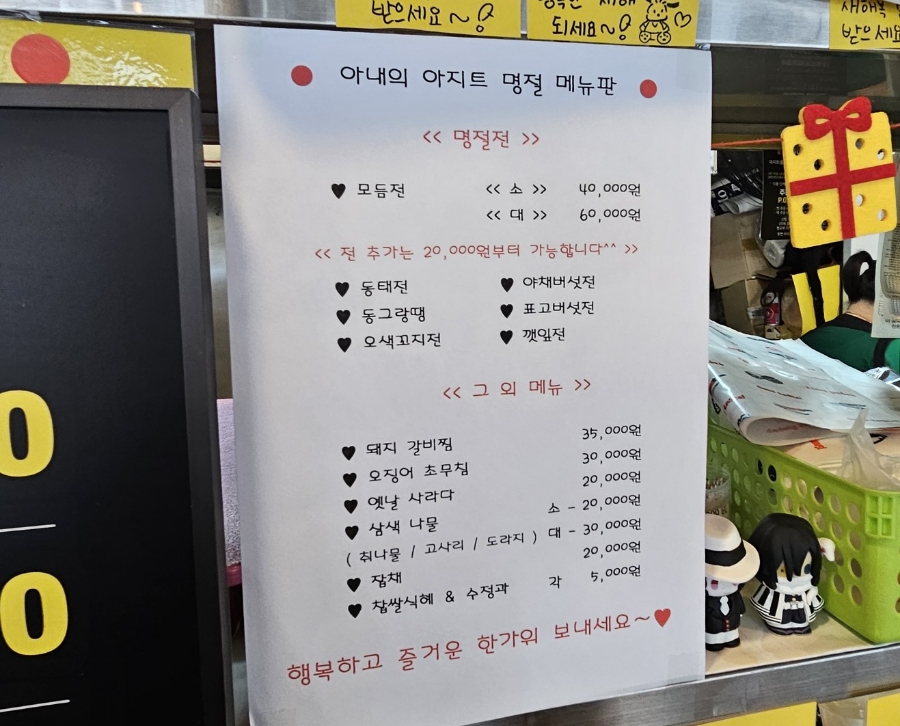 받으세요~
되세요~
받으세요
아내의 아지트 명절 메뉴판
<< 명절전 >>
♥ 모듬전 << 소 >> 40,000원
<< 대 >> 60,000원
<< 전 추가는 20,000원부터 가능합니다^^ >>
♥ 동태전 ♥ 야채버섯전
♥ 동그랑땡 ♥ 표고버섯전
♥ 오색꼬지전 ♥ 깻잎전
<< 그 외 메뉴 >>
♥ 돼지 갈비찜 35,000원
♥ 오징어 초무침 30,000원
♥ 옛날 사라다 20,000원
♥ 삼색 나물 소 - 20,000원
( 취나물 / 고사리 / 도라지 ) 대 - 30,000원
♥ 잡채 20,000원
♥ 찹쌀식혜 & 수정과 각 5,000원
행복하고 즐거운 한가위 보내세요~♥
0
0